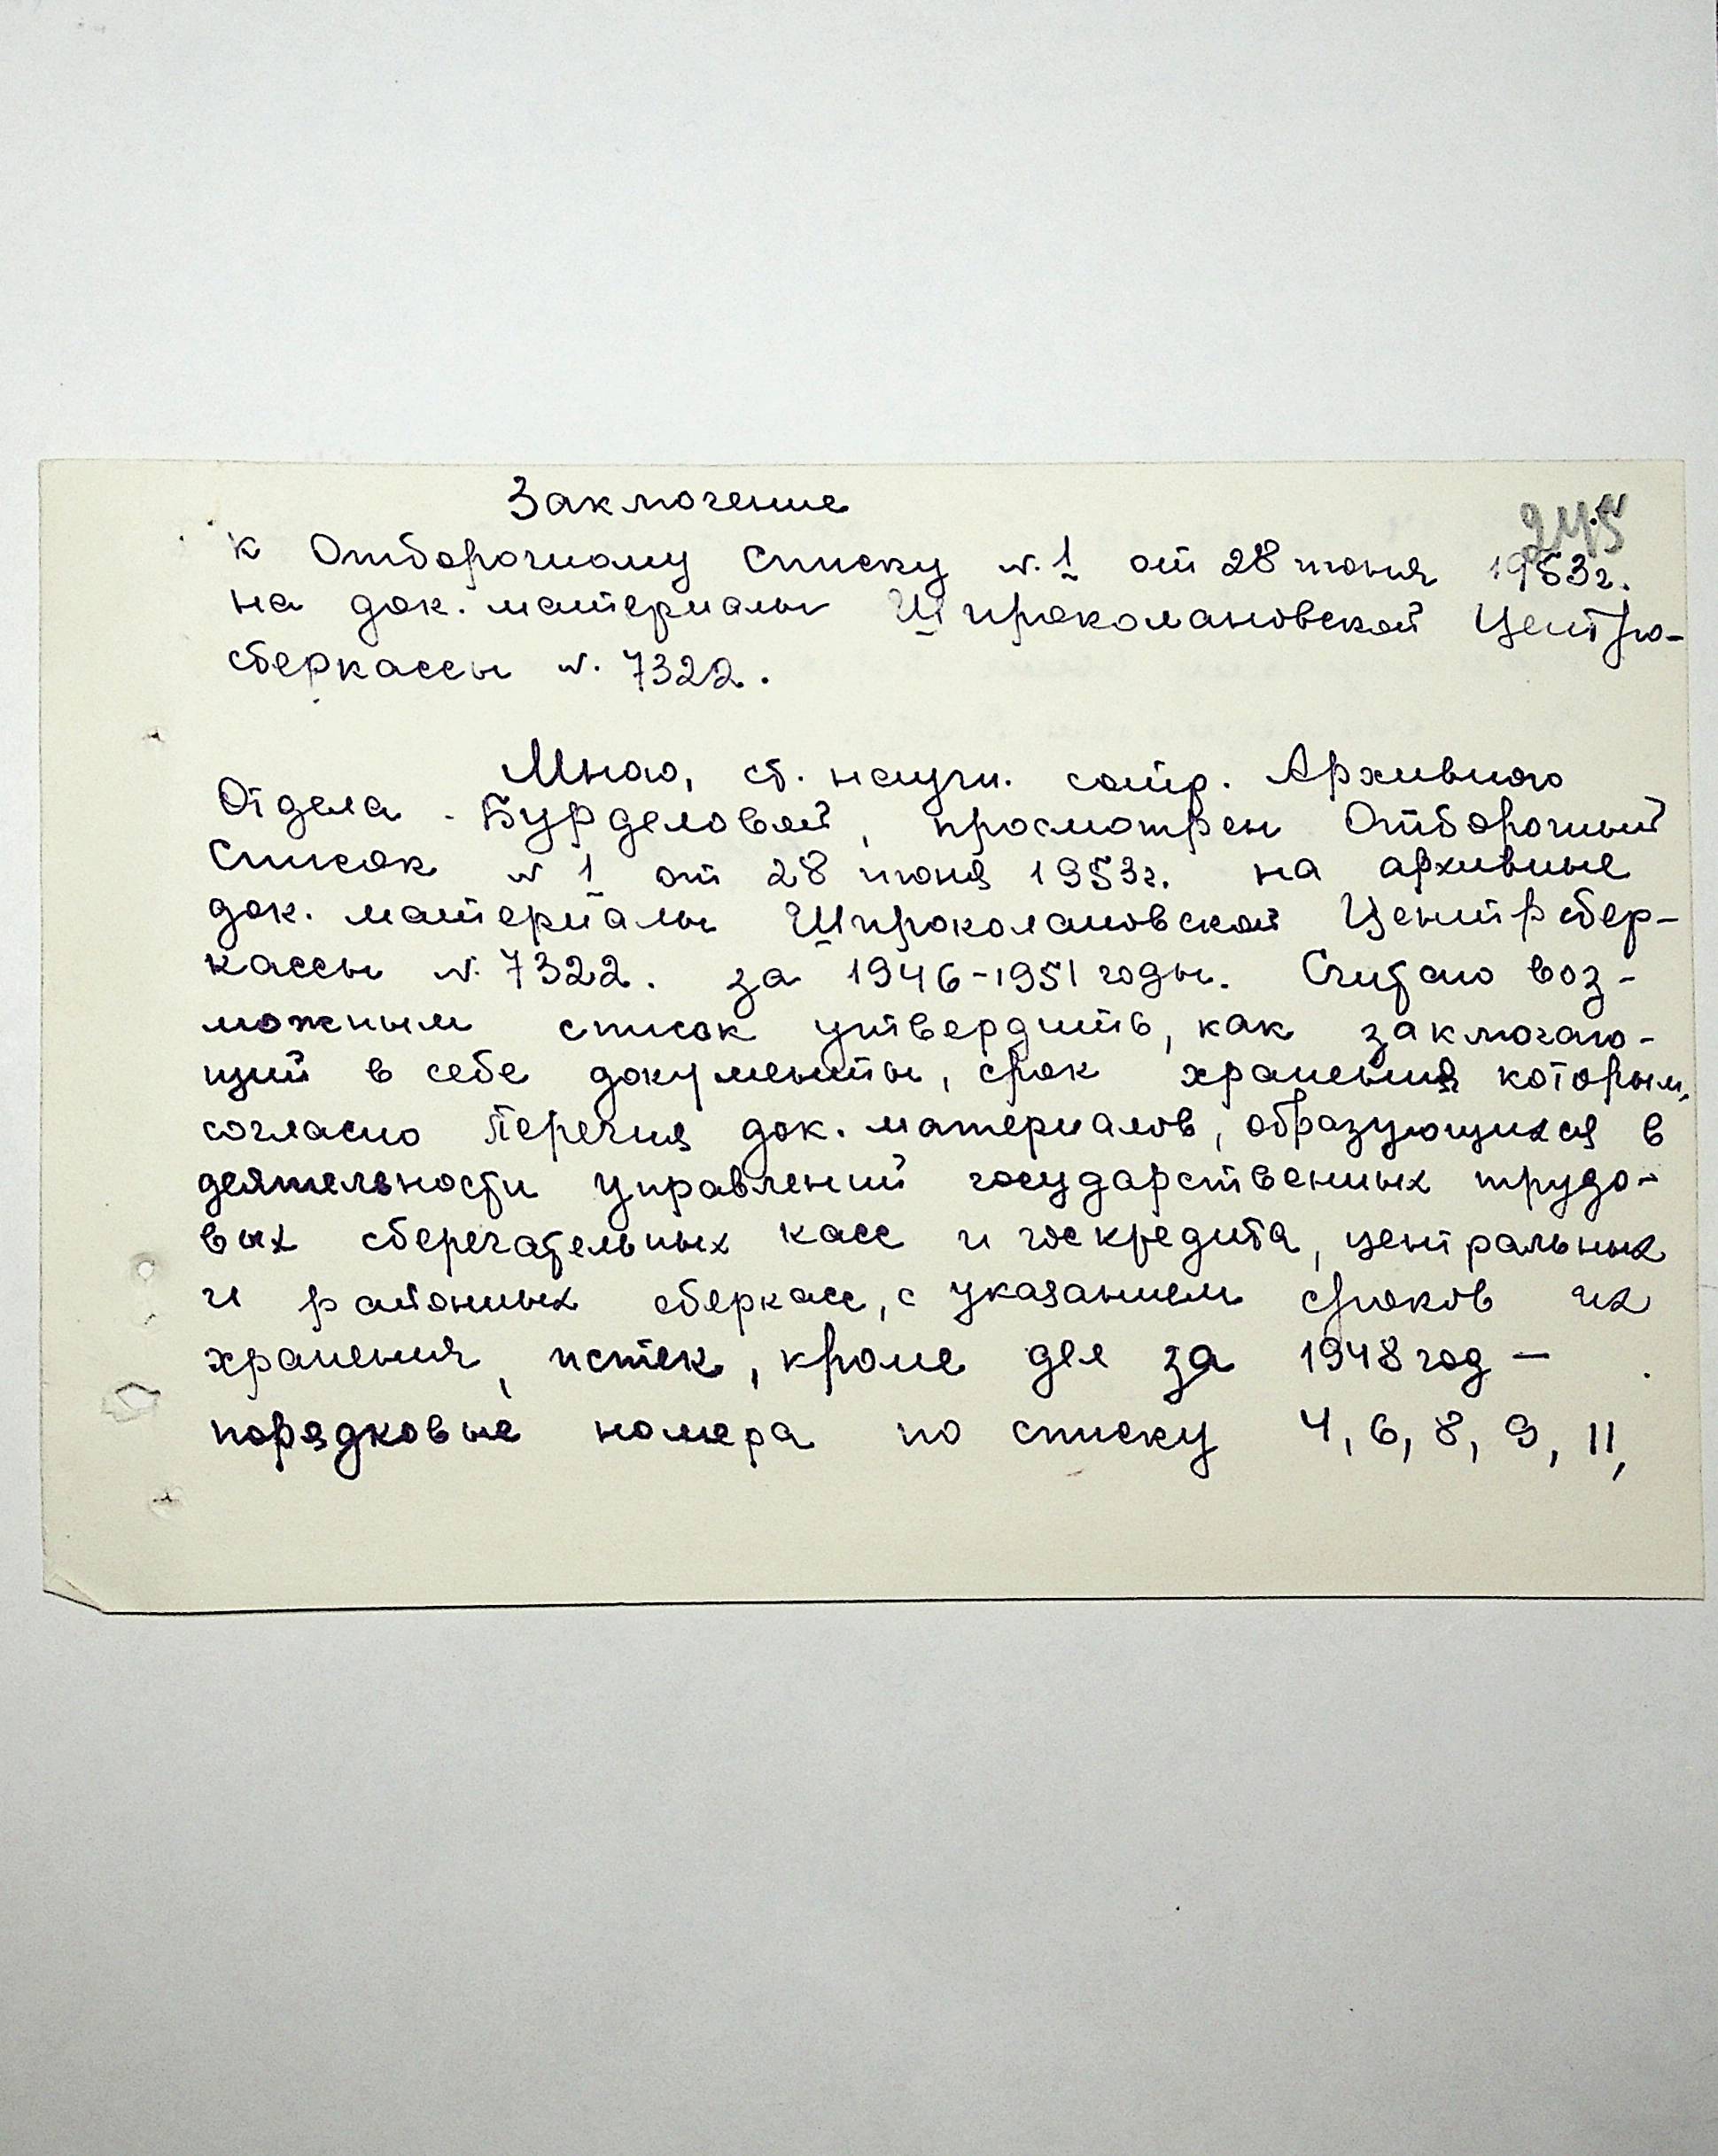 Заключение
245
к Отборочному списку №. 1 от 28 июня 1953г.
на док. материалы Широколановской Центро-
сберкассы №. 7322.
Мною, ст. научн. сотр. Архивного
Отдела - Бурделовой, просмотрен Отборочный
Список № 1 от 28 июня 1953г. на архивные
док. материалы Широколановской Центрсбер-
кассы №. 7322. за 1946-1951 годы. Считаю воз-
можным список утвердить, как заключаю-
щий в себе документы, срок хранения которым,
согласно Перечня док. материалов, образующихся в
деятельности управлений государственных трудо-
вых сберегательных касс и госкредита, центральных
и районных сберкасс, с указанием сроков их
хранения, истек, кроме дел за 1948 год —
порядковые номера по списку 4, 6, 8, 9, 11,